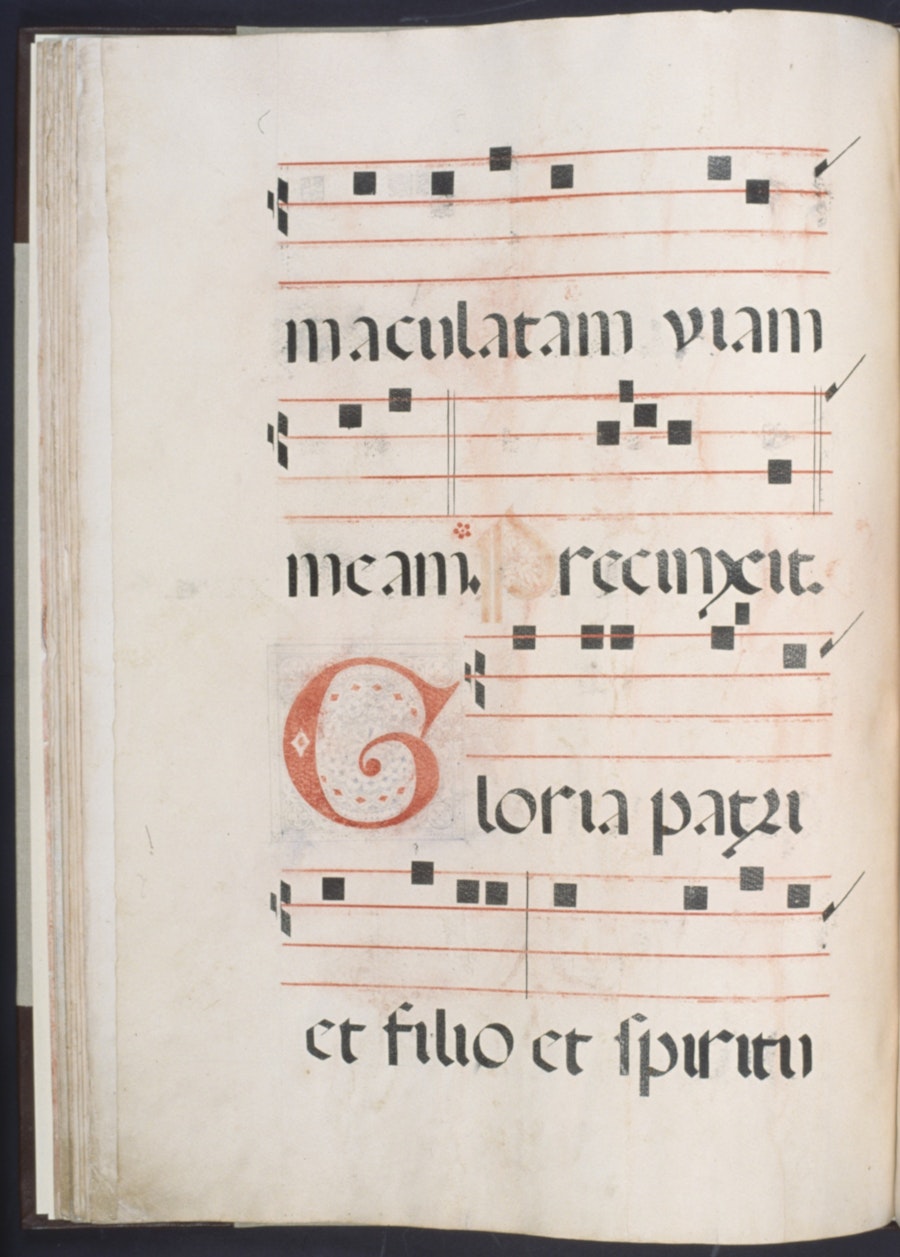 maculatam viam
meam. Precinxit.
Gloria patri
et filio et spiritu